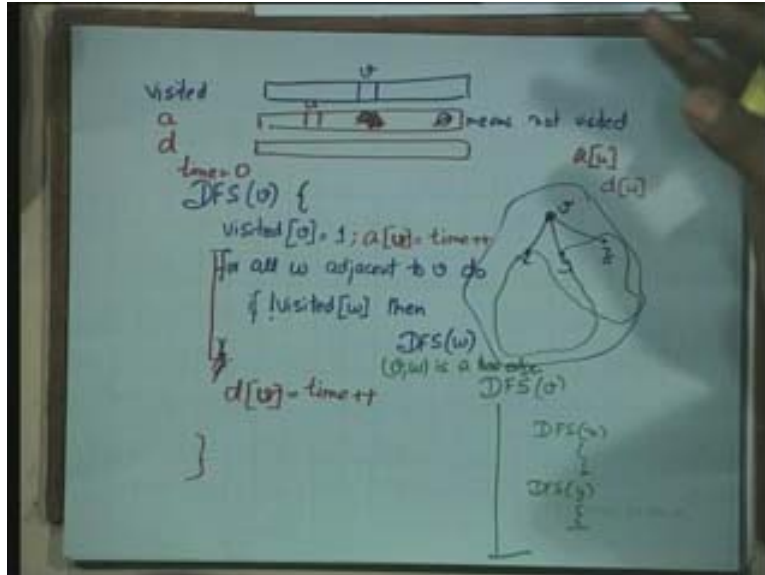 visited
v
a
u
means not visited
d
a[u]
d[u]
time=0
DFS(v) {
visited[v]=1; a[v]=time++
for all w adjacent to v do
if !visited[w] then
DFS(w)
(v,w) is a tree edge
d[v]=time++
}
v
y
DFS(v)
DFS(x)
DFS(y)